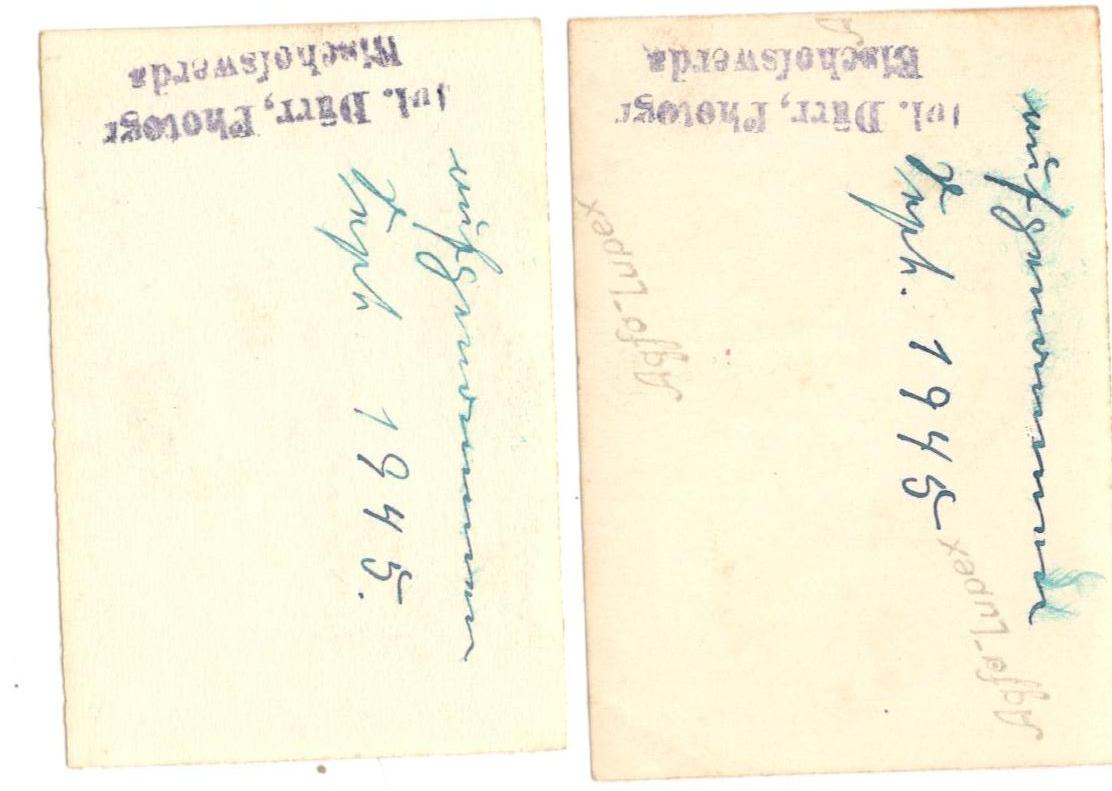 Jul. Dürr, Photogr
Bischofswerda
aufgenommen
Sept 1945.
Jul. Dürr, Photogr
Bischofswerda
aufgenommen
Sept. 1945
Agfa-Lupex
Agfa-Lupex